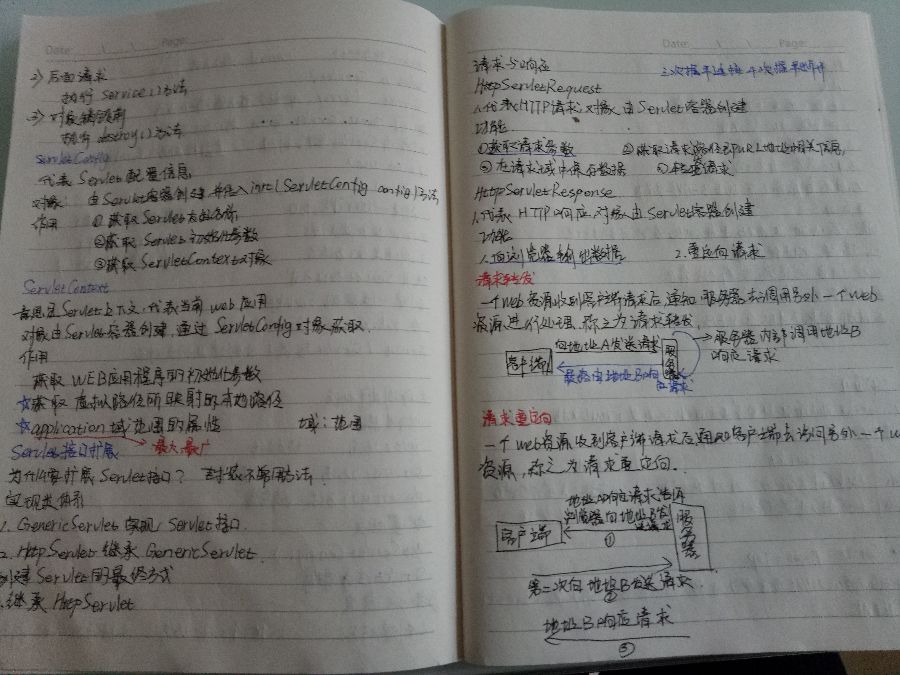 Date: Page:
2) 后面请求
执行 Service()方法
3) 对象销毁前
执行 destroy()方法
ServletConfig
代表 Servlet 配置信息
对象 由 Servlet容器创建,并传入init(ServletConfig config)方法
作用 ① 获取 Servlet 的名称
②获取 Servlet 初始化参数
③获取 ServletContext对象
ServletContext
意思是Servlet上下文,代表当前 web 应用
对象由Servlet容器创建,通过 ServletConfig对象获取.
作用
获取 WEB应用程序的初始化参数
☆获取 虚拟路径所映射的本地路径
☆application 域范围的属性 域:范围
最大,最广
Servlet接口扩展
为什么要扩展 Servlet接口? 多数不常用方法.
实现类体系
1. GenericServlet 实现 Servlet 接口.
2. HttpServlet 继承 GenericServlet
创建 Servlet 的最终方式
继承 HttpServlet
Date: Page:
请求与响应 三次握手
HttpServletRequest
1.代表HTTP请求,对象由Servlet容器创建
功能
①获取请求参数 ②获取请求路径和URL地址相关信息,
③在请求域中保存数据 ④转发请求
HttpServletResponse
1.代表 HTTP响应,对象由 Servlet容器创建
功能
1.向浏览器输出数据 2.重定向请求
请求转发
一个web资源收到客户端请求后,通知 服务器去调用另外一个web
资源进行处理,称之为请求转发.
向地址A发送请求
客户端
服务器
服务器内部调用地址B
响应请求
最终由地址B响应
请求
请求重定向
一个web资源收到客户端请求后通知客户端去访问另外一个w
资源,称之为请求重定向.
地址A响应请求
浏览器向地址B发
客户端
①
服务器
第二次向 地址B发送请求.
②
地址B响应请求
③